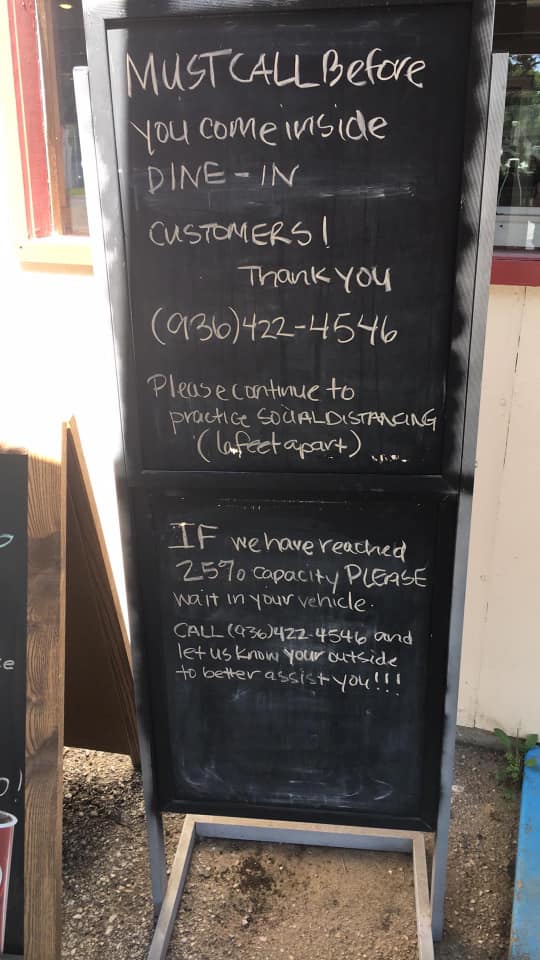 MUST CALL Before
you come inside
DINE-IN
CUSTOMERS!
Thank you
(936)422-4546
Please continue to
practice SOCIAL DISTANCING
(6 feet apart)
IF we have reached
25% capacity PLEASE
wait in your vehicle.
CALL (936)422-4546 and
let us know your outside
to better assist you!!!